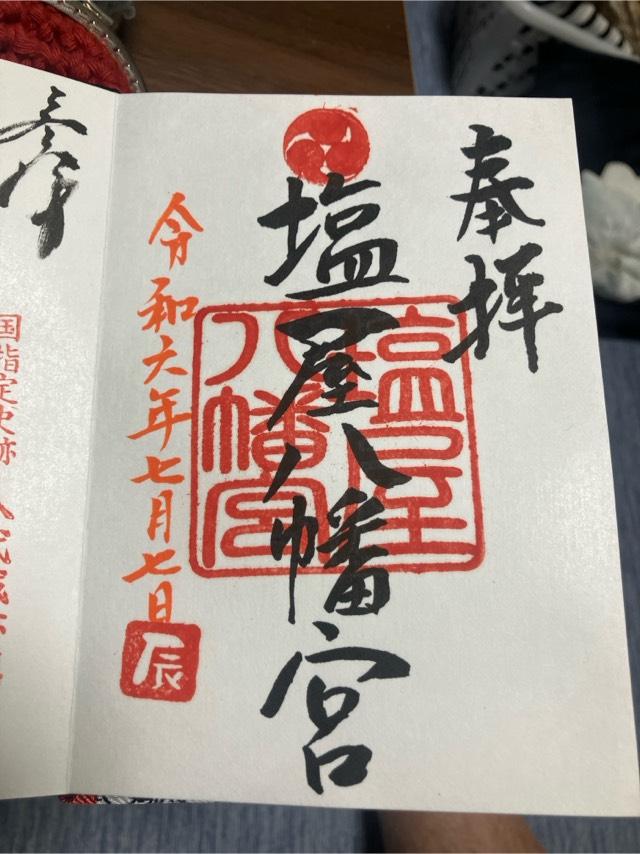 奉拝
塩屋八幡宮
塩屋
八幡宮
令和六年七月七日
辰
国指定史跡